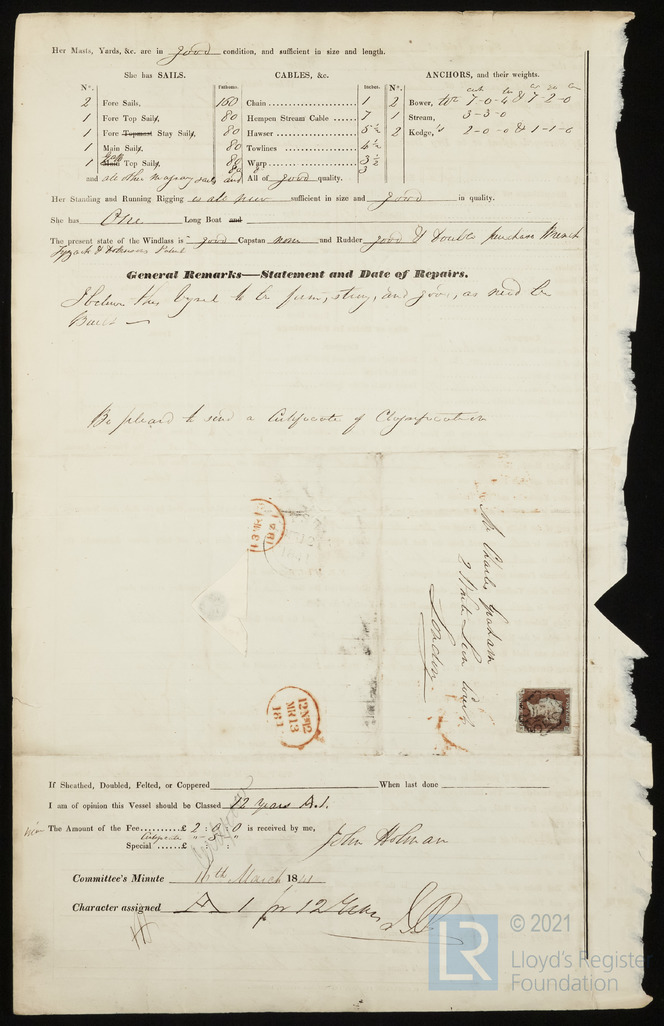 Her Masts, Yards, &c. are in good condition, and sufficient in size and length.
She has SAILS. CABLES, &c. ANCHORS, and their weights.
N°. Fathoms. Inches. N°.
2 Fore Sails, 160 Chain 1 2 Bower, 7-0-4 & 7-2-0
1 Fore Top Sails, 80 Hempen Stream Cable 7 1 Stream, 3-3-0
1 Fore Topmast Stay Sails, 80 Hawser 5½ 2 Kedge,s 2-0-0 & 1-1-0
1 Main Sails, 80 Towlines 4½
1 Gaff Main Top Sails, Warp 3½
and all other necessary sails and All of good quality.
Her Standing and Running Rigging is all new sufficient in size and good in quality.
She has One Long Boat and
The present state of the Windlass is good Capstan none and Rudder good & Double purchase Winch
General Remarks—Statement and Date of Repairs.
I believe this Vessel to be firm, strong, and good, as need be
Built
Be pleased to send a Certificate of Classification
Mr Charles Graham
2 White Lion Court
London
1841
12 NN 12
MR 13
184
If Sheathed, Doubled, Felted, or Coppered When last done
I am of opinion this Vessel should be Classed 12 Years A.1.
The Amount of the Fee £ 2 : 0 : 0 is received by me,
Certificate " 5 "
Special £ : :
John Holman
Committee's Minute 16th March 1841
Character assigned A 1 for 12 Years
© 2021
LR
Lloyd's Register
Foundation